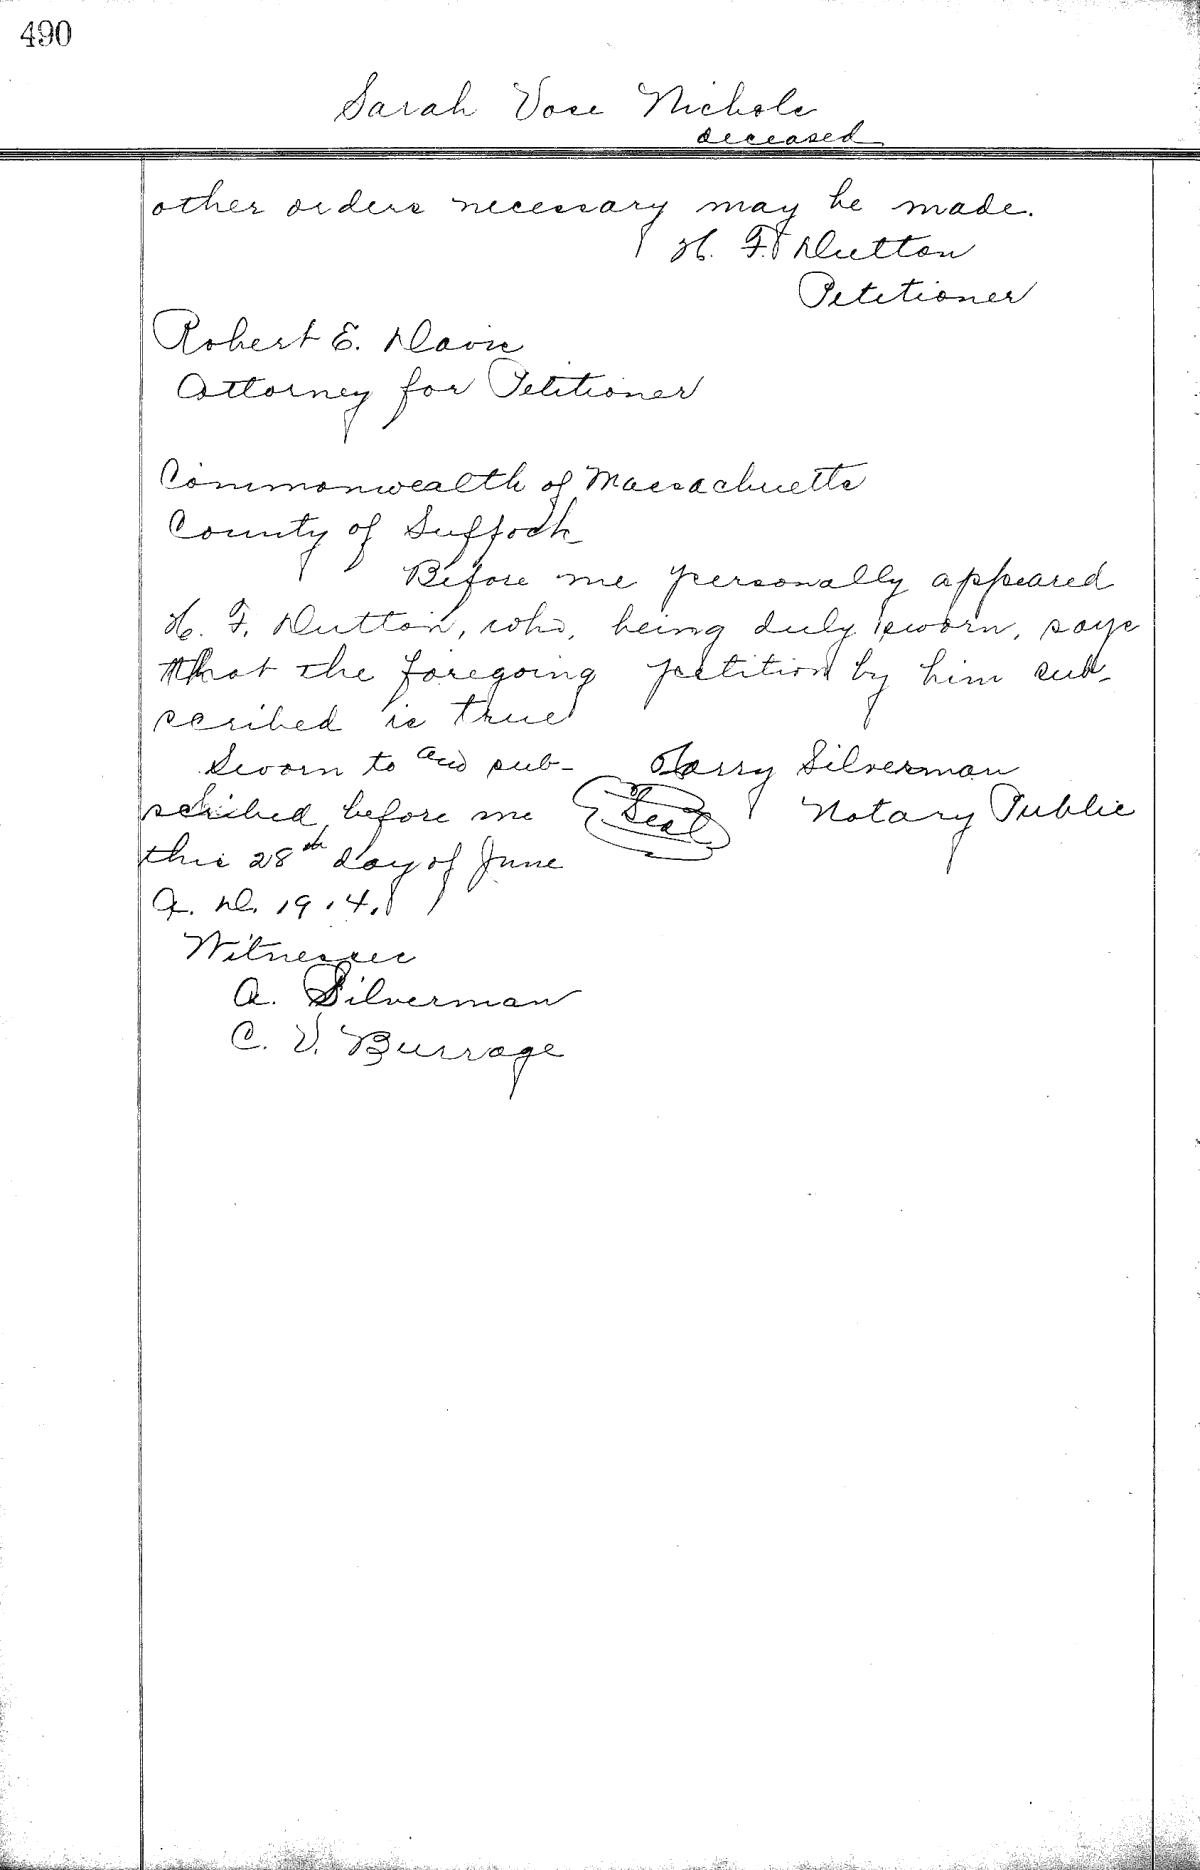 490
Sarah Vose Nichols
deceased
other orders necessary may be made.
H. F. Dutton
Petitioner
Robert E. Davis
Attorney for Petitioner
Commonwealth of Massachuetts
County of Suffock
Before me personally appeared
H. F. Dutton, who, being duly sworn, says
that the foregoing petition by him sub-
scribed is true
Sworn to and sub- Harry Silverman
scribed before me (Seal) Notary Public
this 28th day of June
A. D. 1914.
Witnesses
A. Silverman
C. V. Burrage